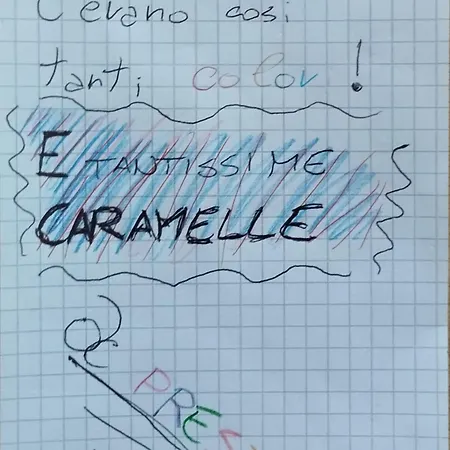 C'erano così
tanti colori!
E TANTISSIME
CARAMELLE